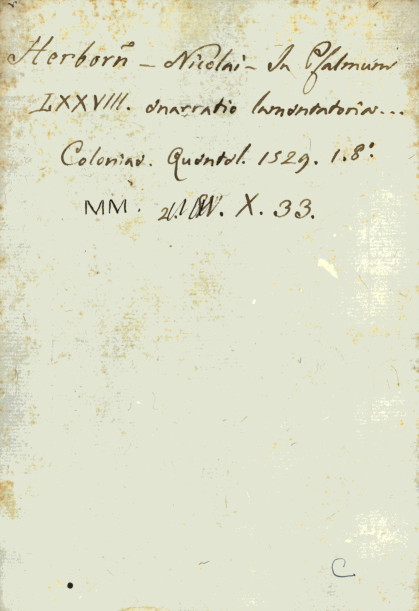 Herborñ - Nicolai - In Psalmum
LXXVIII. enarratio lamentatoria...
Coloniae. Quentel. 1529. 1.8°.
MM. X. 33.
C